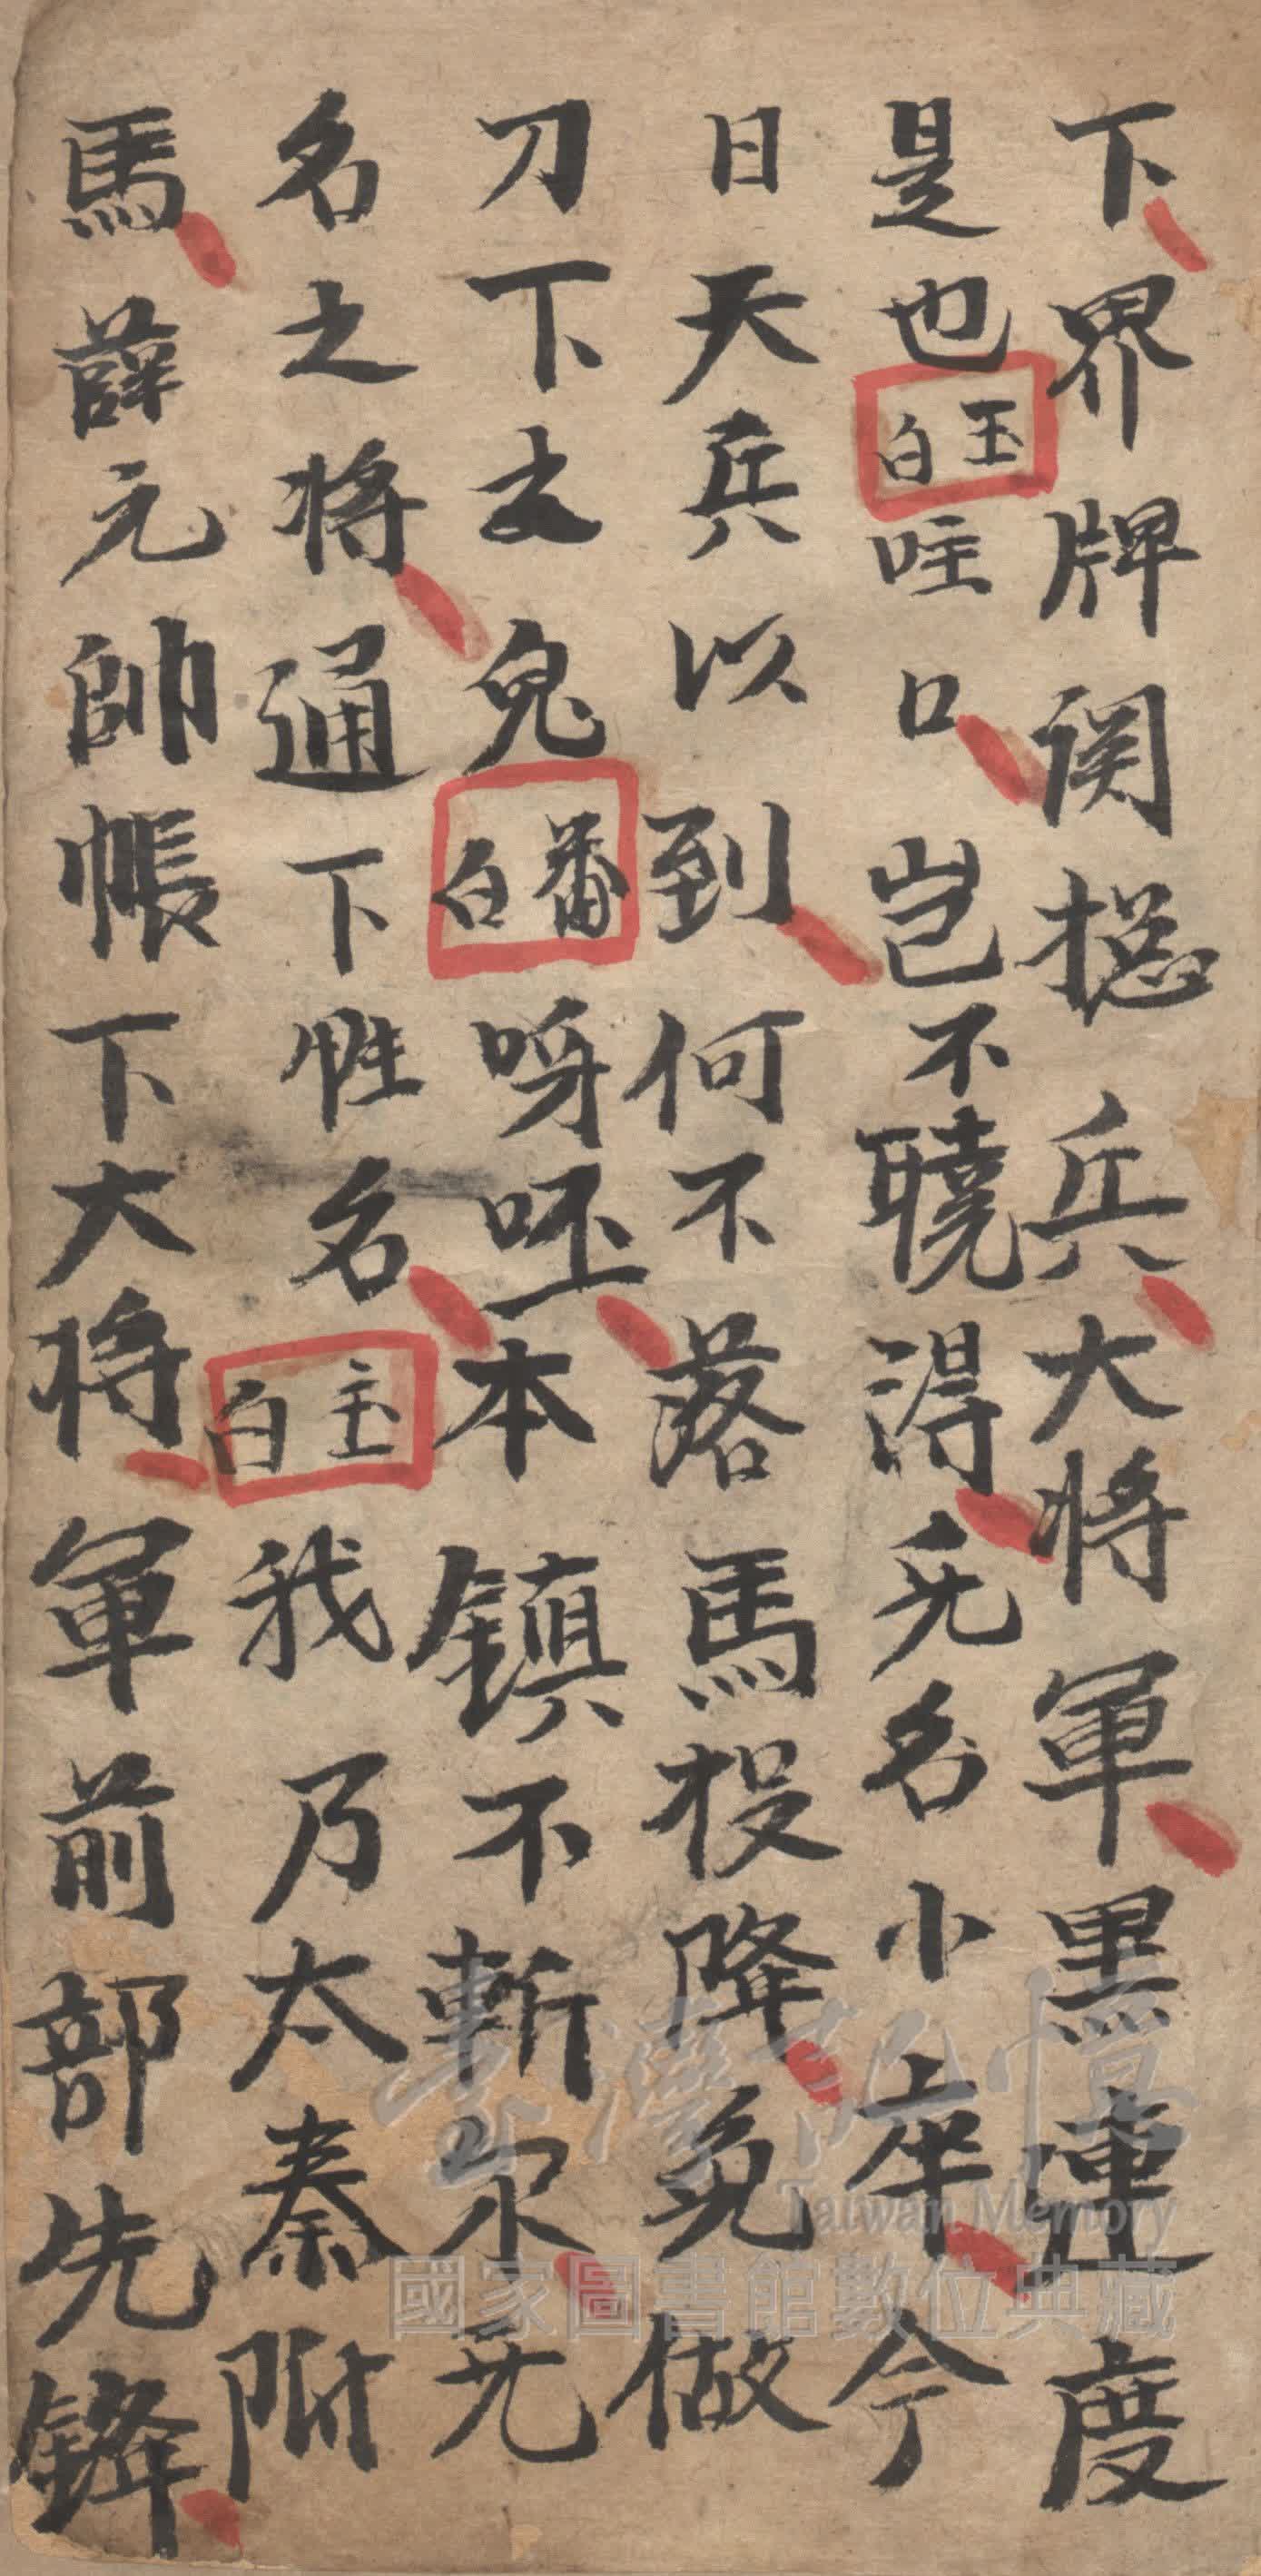 下界牌関揔兵大将軍黑連度
是也玉白哇口岂不曉得旡名小卒今
日天兵以到何不落馬投降免做
刀下之鬼番白呀呸本鎮不斬尔旡
名之将通下性名玉白我乃太秦附
馬薛元帥帳下大将軍前部先鋒
臺灣記憶
Taiwan Memory
國家圖書館數位典藏